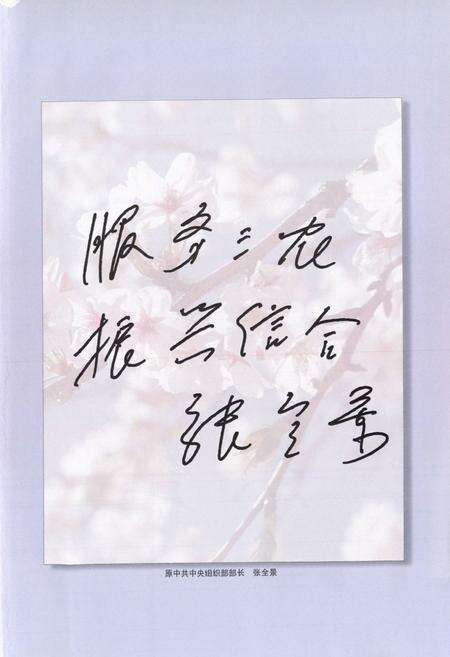 服务三农
振兴信合
张全景
原中共中央组织部部长　张全景